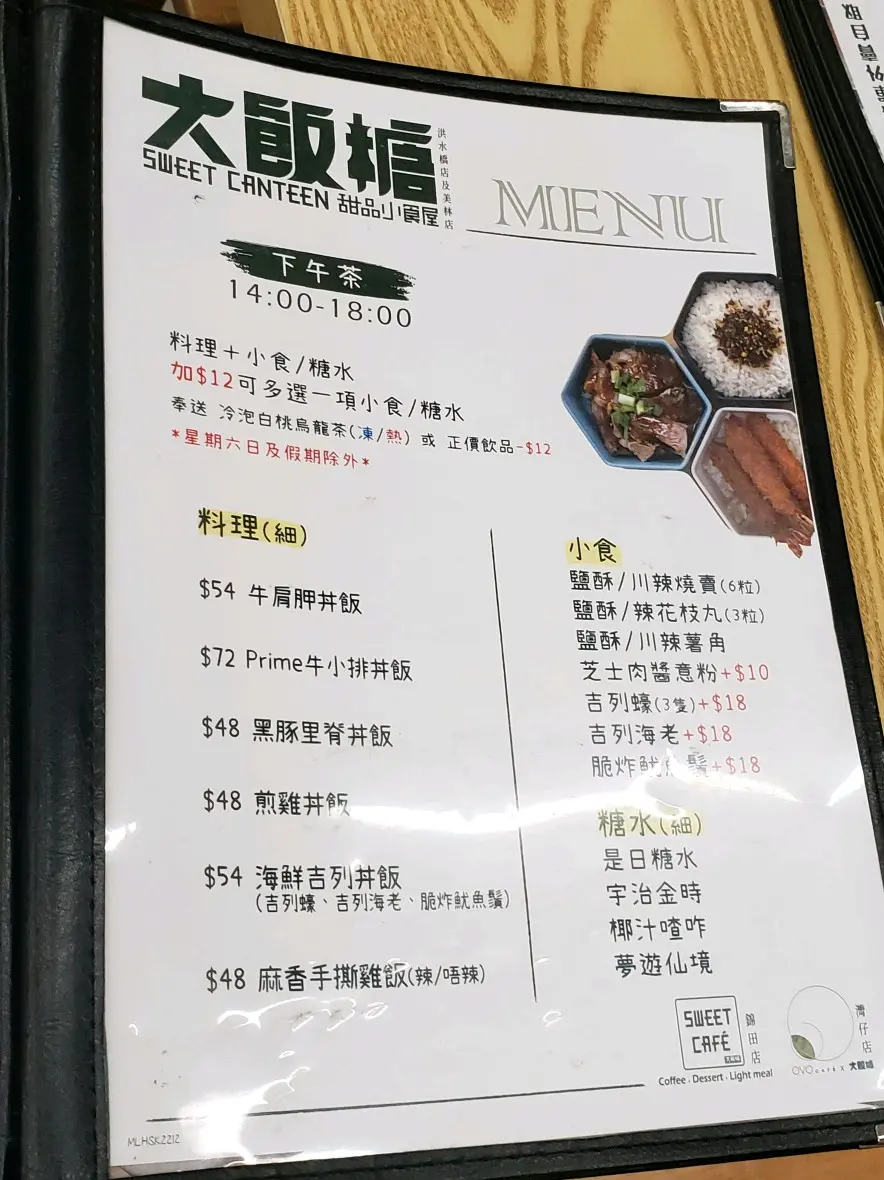 大飯糖
SWEET CANTEEN 甜品小食屋
洪水橋店及美林店
MENU
下午茶
14:00-18:00
料理＋小食/糖水
加$12可多選一項小食/糖水
奉送 冷泡白桃烏龍茶(凍/熱) 或 正價飲品-$12
*星期六日及假期除外*
料理(細)
$54 牛肩胛丼飯
$72 Prime牛小排丼飯
$48 黑豚里脊丼飯
$48 煎雞丼飯
$54 海鮮吉列丼飯
(吉列蠔、吉列海老、脆炸魷魚鬚)
$48 麻香手撕雞飯(辣/唔辣)
小食
鹽酥/川辣燒賣(6粒)
鹽酥/辣花枝丸(3粒)
鹽酥/川辣薯角
芝士肉醬意粉+$10
吉列蠔(3隻)+$18
吉列海老+$18
脆炸魷魚鬚+$18
糖水(細)
是日糖水
宇治金時
椰汁喳咋
夢遊仙境
SWEET CAFÉ
錦田店
Coffee . Dessert . Light meal
灣仔店
OVO CAFÉ x 大飯糖
MLHSK2212
外賣自取